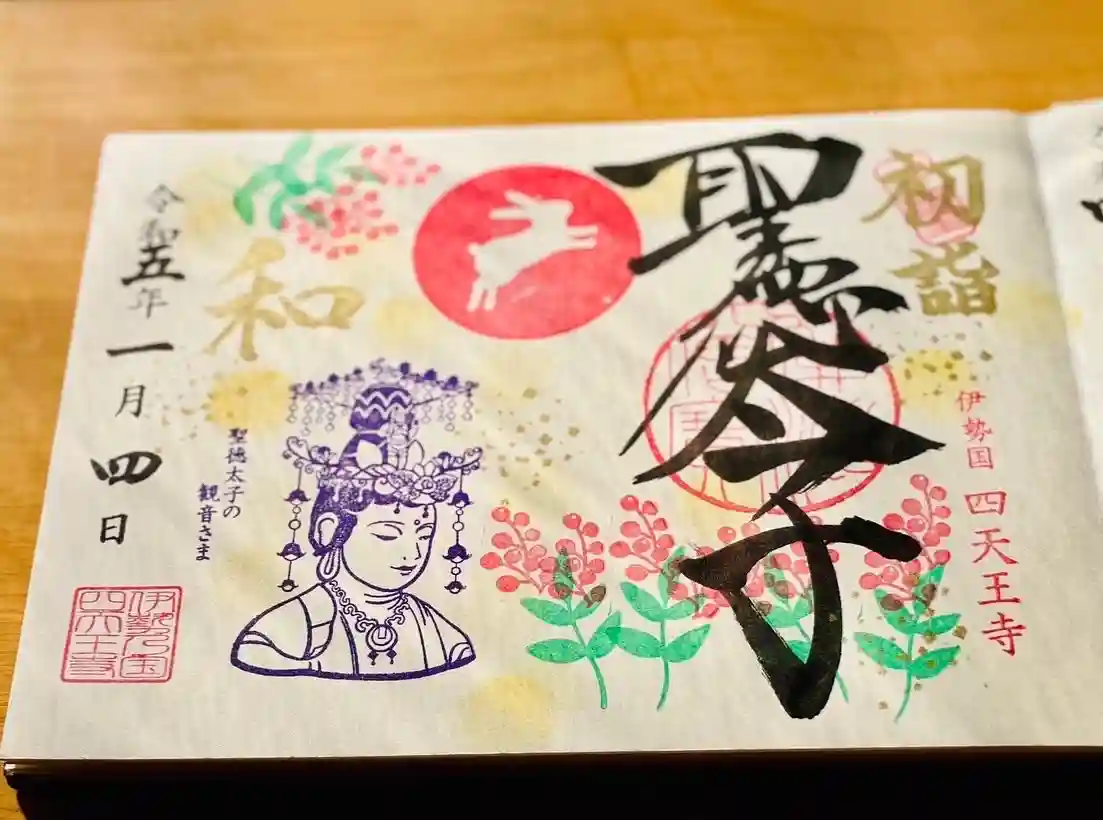 初詣
伊勢国 四天王寺
聖徳太子
和
聖徳太子の
観音さま
令和五年一月四日
伊勢乃国
四天王寺